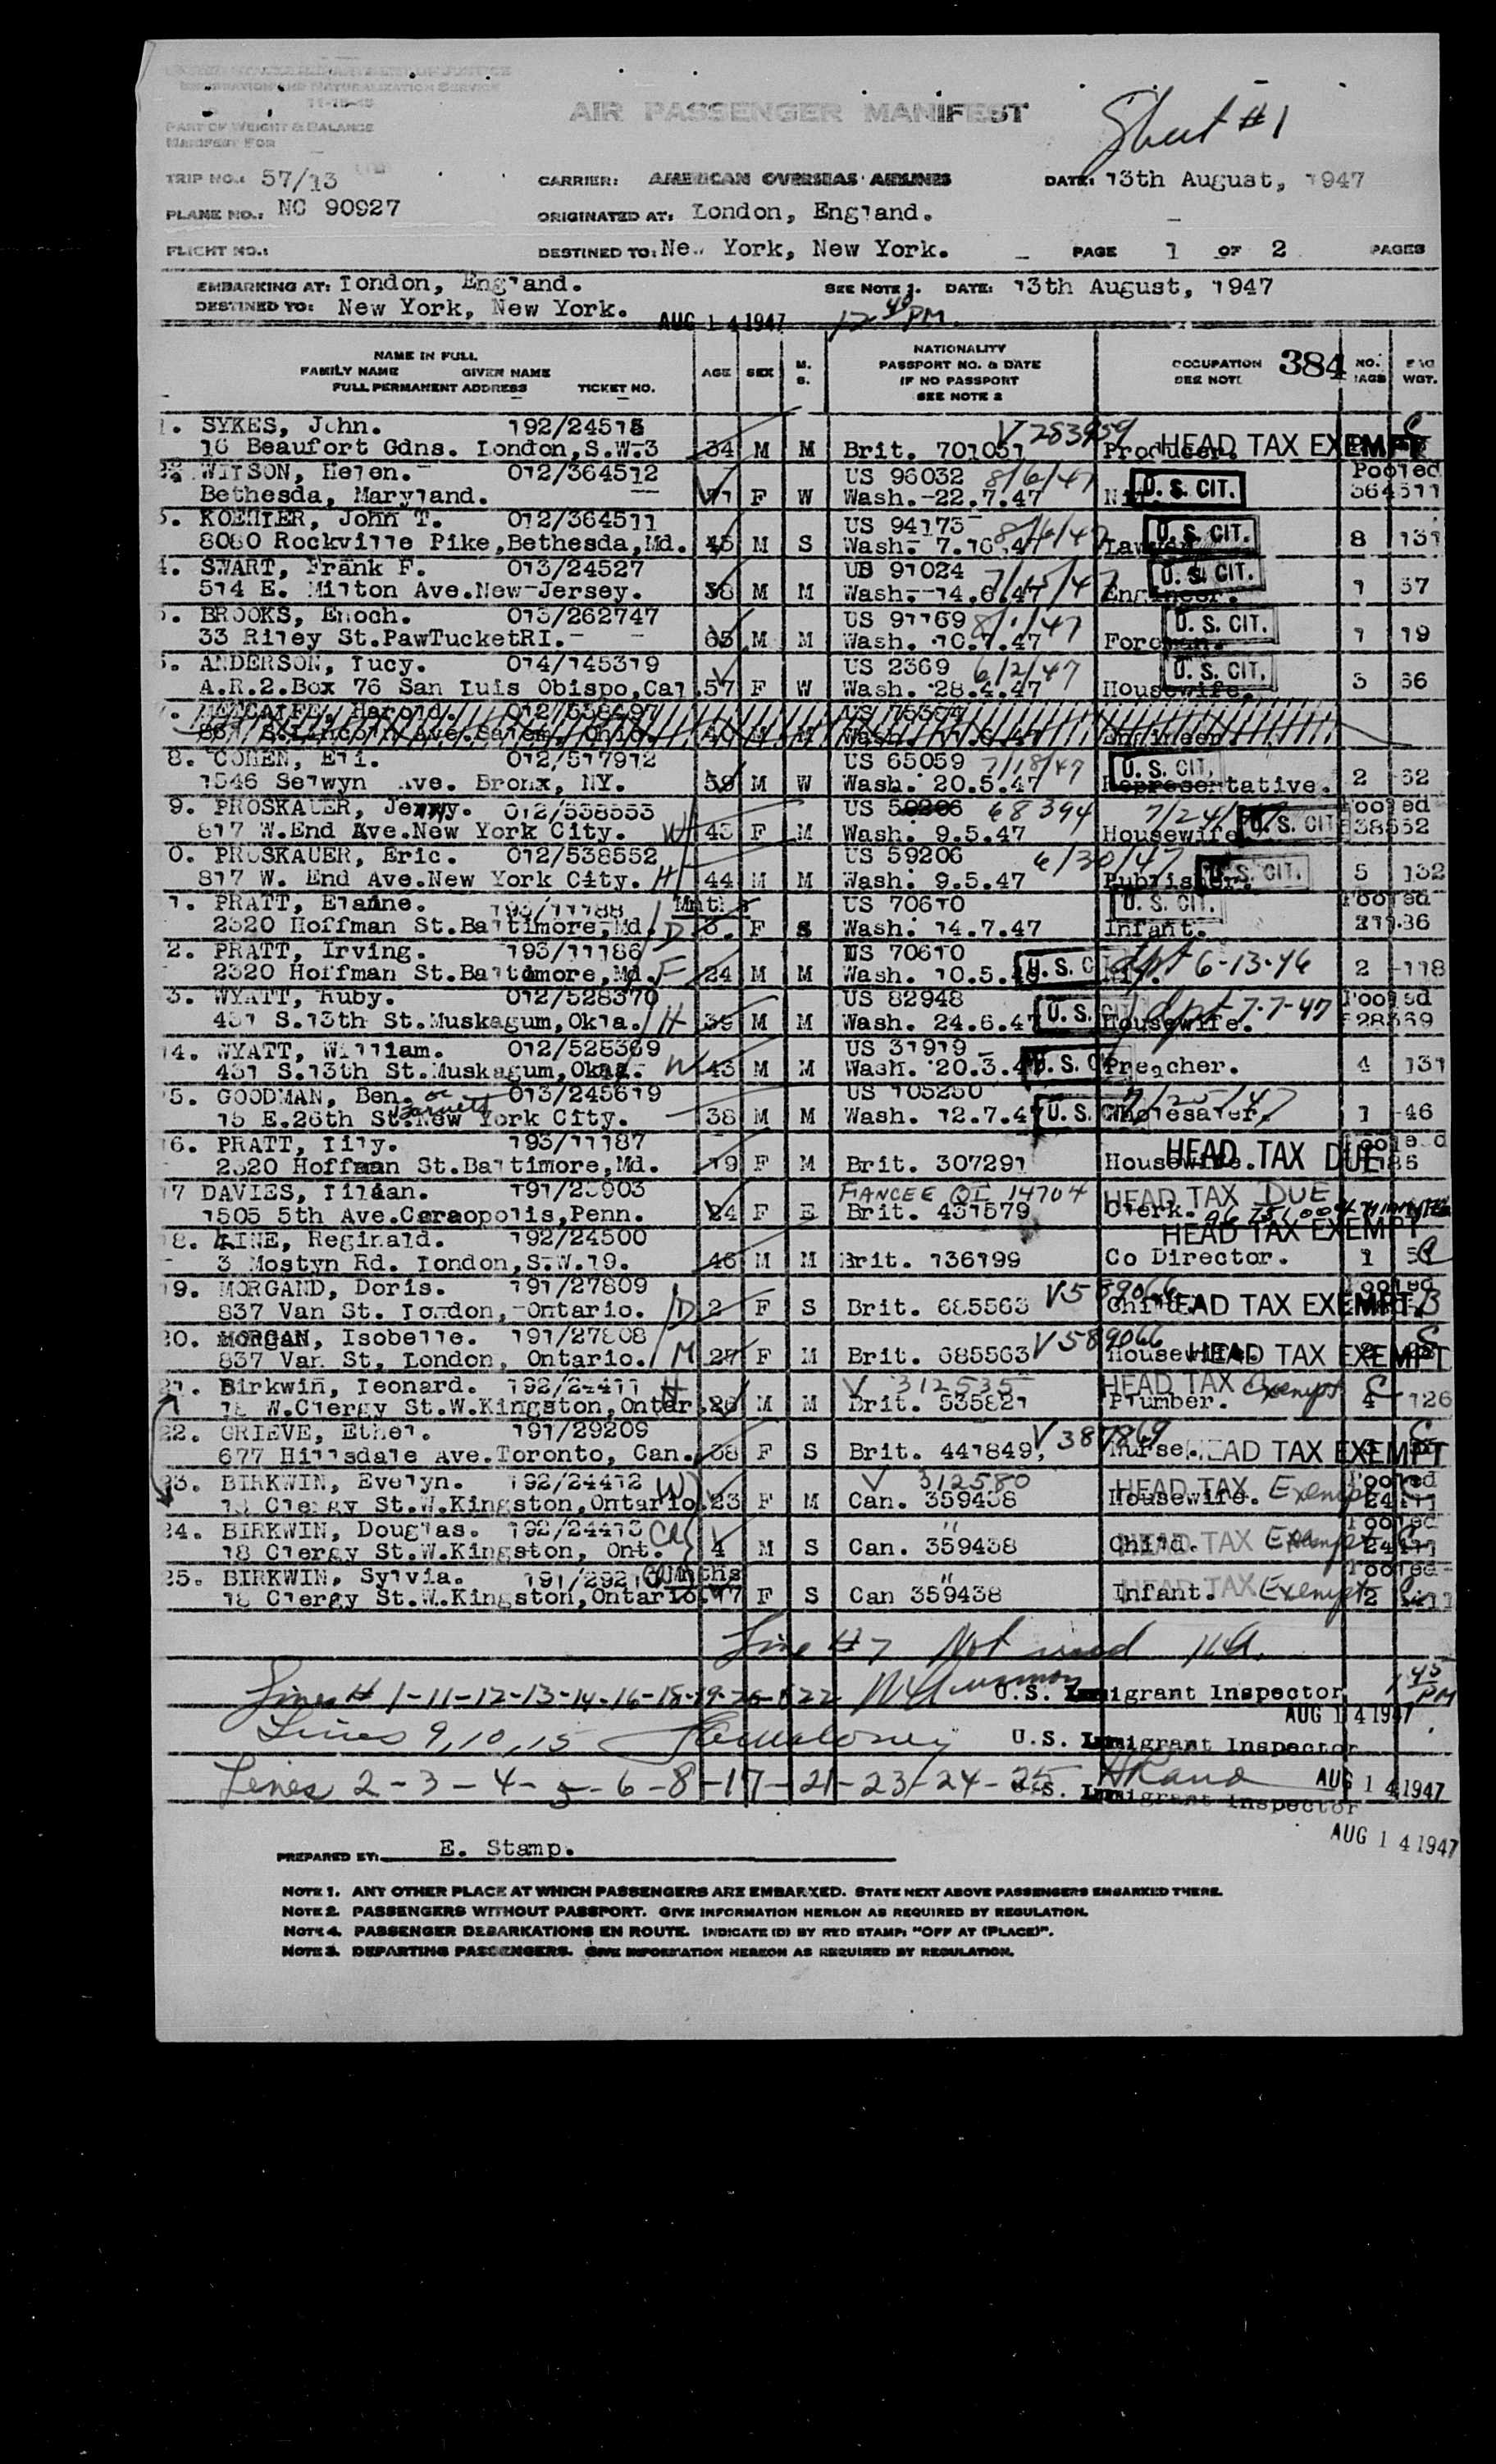 IMMIGRATION AND NATURALIZATION SERVICE
PART OF WEIGHT & BALANCE
MANIFEST FOR
AIR PASSENGER MANIFEST
Sheet #1
TRIP NO.: 57/13 CARRIER: AMERICAN OVERSEAS AIRLINES DATE: 13th August, 1947
PLANE NO.: NC 90927 ORIGINATED AT: London, England.
FLIGHT NO.: DESTINED TO: New York, New York. PAGE 1 OF 2 PAGES
EMBARKING AT: London, England. SEE NOTE 1. DATE: 13th August, 1947
DESTINED TO: New York, New York. AUG 14 1947 12 40 PM
NAME IN FULL
FAMILY NAME GIVEN NAME
FULL PERMANENT ADDRESS TICKET NO.
AGE SEX M. S.
NATIONALITY
PASSPORT NO. & DATE
IF NO PASSPORT
SEE NOTE 2
OCCUPATION 384 NO. BAGS BAG WGT.
SEE NOTE
1. SYKES, John. 192/24515 V 283959
16 Beaufort Gdns. London,S.W.3 34 M M Brit. 701051 Producer. HEAD TAX EXEMPT
WILSON, Helen. 012/364512 US 96032 8/6/47 U. S. CIT. Pooled
Bethesda, Maryland. 71 F W Wash. 22.7.47 Nil 364511
3. KOEHLER, John T. 012/364511 US 94173 8/6/47 U. S. CIT.
8080 Rockville Pike,Bethesda,Md. 45 M S Wash. 7.10.47 Lawyer. 8 131
4. SWART, Frank F. 013/24527 US 91024 7/15/47 U. S. CIT.
514 E. Milton Ave.New-Jersey. 38 M M Wash. 14.6.47 Engineer. 1 37
5. BROOKS, Enoch. 013/262747 US 91169 U. S. CIT.
33 Riley St.PawTucketRI. 65 M M Wash. 10.7.47 Foreman. 1 19
6. ANDERSON, Lucy. 014/145319 US 2369 6/2/47 U. S. CIT.
A.R.2.Box 76 San Luis Obispo,Cal. 57 F W Wash. 28.4.47 Housewife. 3 66
7. METCALFE, Harold. 012/538497
S.Lincoln Ave.Salem, Ohio. M M Engineer.
8. COHEN, Eli. 012/517912 US 65059 7/18/47 U. S. CIT.
1546 Selwyn Ave. Bronx, NY. 59 M W Wash. 20.5.47 Representative. 2 62
9. PROSKAUER, Jenny. 012/538553 US 59206 68394 7/24/47 Pooled
817 W.End Ave.New York City. W 43 F M Wash. 9.5.47 Housewife U. S. CIT. 538552
10. PROSKAUER, Eric. 012/538552 US 59206 6/30/47
817 W. End Ave.New York City. H 44 M M Wash. 9.5.47 Publisher. U. S. CIT. 5 132
11. PRATT, Elaine. 193/11188 Mnths US 70610 U. S. CIT. Pooled
2320 Hoffman St.Baltimore,Md. D F S Wash. 14.7.47 Infant.
12. PRATT, Irving. 193/11186 US 70610 dpt 6-13-46
2320 Hoffman St.Baltimore,Md. F 24 M M Wash. 10.5.46 U. S. CIT. Nil. 2 118
13. WYATT, Ruby. 012/528370 US 82948 dpt 7-7-47 Pooled
431 S.13th St.Muskagum,Okla. H 39 M M Wash. 24.6.47 U. S. CIT. Housewife. 528369
14. WYATT, William. 012/528369 US 31919
431 S.13th St.Muskagum,Okla. W 43 M M Wash. 20.3.47 U. S. CIT. Preacher. 4 131
15. GOODMAN, Ben. or Barnett 013/245619 US 105250 7/25/47
15 E.26th St.New York City. 38 M M Wash. 12.7.47 U. S. CIT. Wholesaler. 1 46
16. PRATT, Lily. 193/11187 HEAD TAX DUE Pooled
2320 Hoffman St.Baltimore,Md. 19 F M Brit. 307291 Housewife. 11186
17 DAVIES, Lilian. 191/28903 FIANCEE QI 14704 HEAD TAX DUE
1505 5th Ave.Coraopolis,Penn. 24 F E Brit. 431579 Clerk.
18. LINE, Reginald. 192/24500 HEAD TAX EXEMPT
3 Mostyn Rd. London,S.W.19. 46 M M Brit. 136199 Co Director. 1
19. MORGAND, Doris. 191/27809 V589066 Pooled
837 Van St. London, Ontario. D 2 F S Brit. 685563 Child. HEAD TAX EXEMPT
20. MORGAN, Isobelle. 191/27808 V589066
837 Van St, London, Ontario. M 27 F M Brit. 685563 Housewife. HEAD TAX EXEMPT
21. Birkwin, Leonard. 192/24411 H V 312535 HEAD TAX Exempt
18 W.Clergy St.W.Kingston,Ontar. 26 M M Brit. 535821 Plumber. 4 126
22. GRIEVE, Ethel. 191/29209 V 387869
677 Hillsdale Ave.Toronto, Can. 38 F S Brit. 441849, Nurse. HEAD TAX EXEMPT
23. BIRKWIN, Evelyn. 192/24412 W V 312580 HEAD TAX Exempt Pooled
18 Clergy St.W.Kingston,Ontario. 23 F M Can. 359438 Housewife. 24411
24. BIRKWIN, Douglas. 192/24413 Ch " Pooled
18 Clergy St.W.Kingston, Ont. 4 M S Can. 359438 Child. HEAD TAX Exempt 24411
25. BIRKWIN, Sylvia. 191/29210 Mnths " Pooled
18 Clergy St.W.Kingston,Ontario. 17 F S Can 359438 Infant. HEAD TAX Exempt
Line #7 Not used
Lines # 1-11-12-13-14-16-18-19-20-22 U.S. Immigrant Inspector 1 45 PM
AUG 14 1947
Lines 9,10,15 U.S. Immigrant Inspector
Lines 2-3-4-5-6-8-17-21-23-24-25 U.S. Immigrant Inspector AUG 14 1947
AUG 14 1947
PREPARED BY: E. Stamp.
NOTE 1. ANY OTHER PLACE AT WHICH PASSENGERS ARE EMBARKED. STATE NEXT ABOVE PASSENGERS EMBARKED THERE.
NOTE 2. PASSENGERS WITHOUT PASSPORT. GIVE INFORMATION HEREON AS REQUIRED BY REGULATION.
NOTE 4. PASSENGER DEBARKATIONS EN ROUTE. INDICATE (D) BY RED STAMP: "OFF AT (PLACE)".
NOTE 3. DEPARTING PASSENGERS. GIVE INFORMATION HEREON AS REQUIRED BY REGULATION.